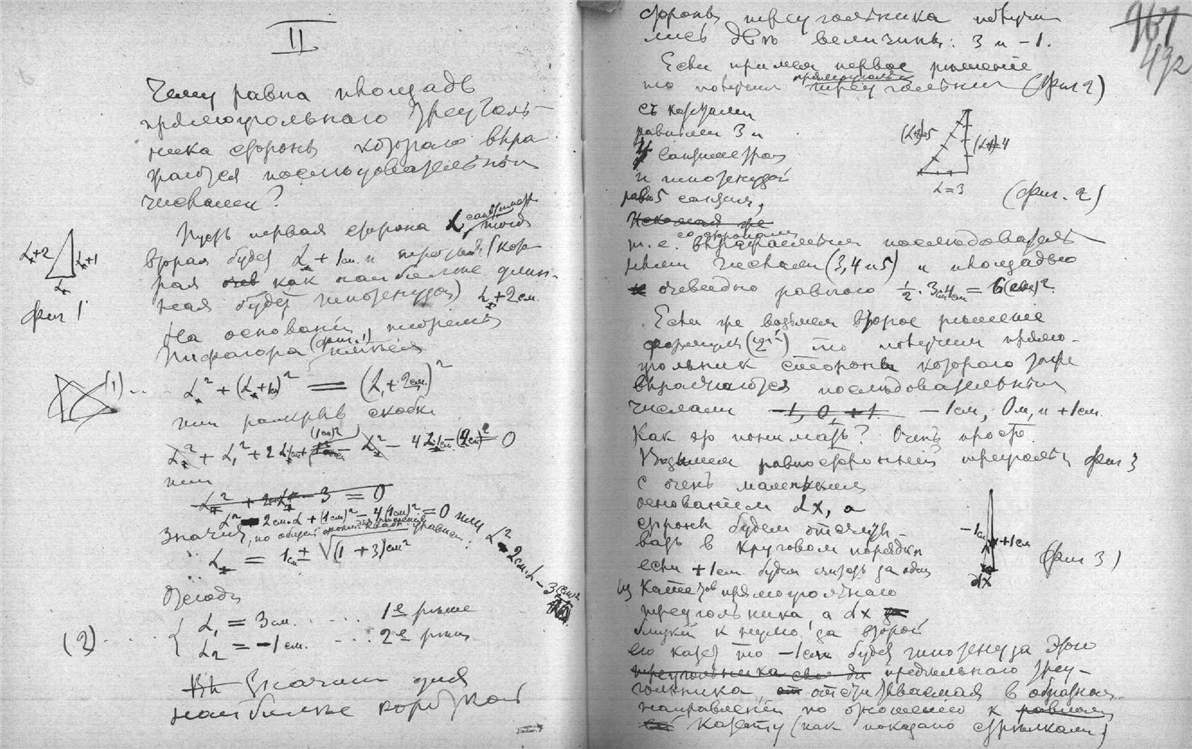 II
Чему равна площадь
прямоугольнаго треуголь-
ника стороны котораго выра
жаются последовательными
числами?
Пусть первая сторона α сантиметр. тогда
вторая будет α + 1см. и третья (кото
рая как наиболее длин-
ная будет гипотенузой) α+2см.
α+2
α+1
α
Фиг 1
На основании теоремы
Пифагора (фиг. 1) имеем
(1) ...
α² + (α+1)² = (α+2см.)²
или раскрыв скобки
α² + α² + 2α + (1см)² - α² - 4α - (2см)² = 0
или
α² + 2α - 3 = 0
α² - 2см.α + (1см)² - 4(1см)² = 0 или α² - 2см.α - 3см²
Значит, по общей уравнен:
α = 1см ± √(1 + 3)см²
Отсюда
(2) ...
α₁ = 3см. ..... 1е решение
α₂ = -1см. ... 2е решен
Значит для
наиболее короткой
967
492
стороны треугольника получи
лись две величины: 3 и -1.
Если примем первое решение
то получим прямоугольный треугольник (фиг 2)
съ катетами
равными 3 и
4 сантиметрам
и гипотенузой
равн 5 сантим,
(α+2)=5
(α+1)=4
α=3
(фиг. 2)
т.е. со сторонами выражаемыми последователь-
ными числами (3, 4 и 5) и площадью
очевидно равного ½ . 3см 4см = 6(см)².
Если же возьмем второе решение
формулы то получим прямо-
угольник стороны котораго тоже
выражаются последовательными
числами -1, 0, +1 -1см, 0м, и +1см.
Как это понимать? Очень просто.
Возьмем равносторонний треугольн фиг 3
с очень маленьким
основанием dx, а
стороны будем отсчиты
вать в круговом порядке
если +1см. будем считать за один
из катетов прямоугольнаго
треугольника, а dx
близкий к нулю, за второй
его катет то -1см будет гипотенуза этого
предельнаго треу-
гольника, отсчитываемая в обратном
направлении по отношению к
катету (как показано стрелками)
-1см
+1см
dx
(фиг 3)